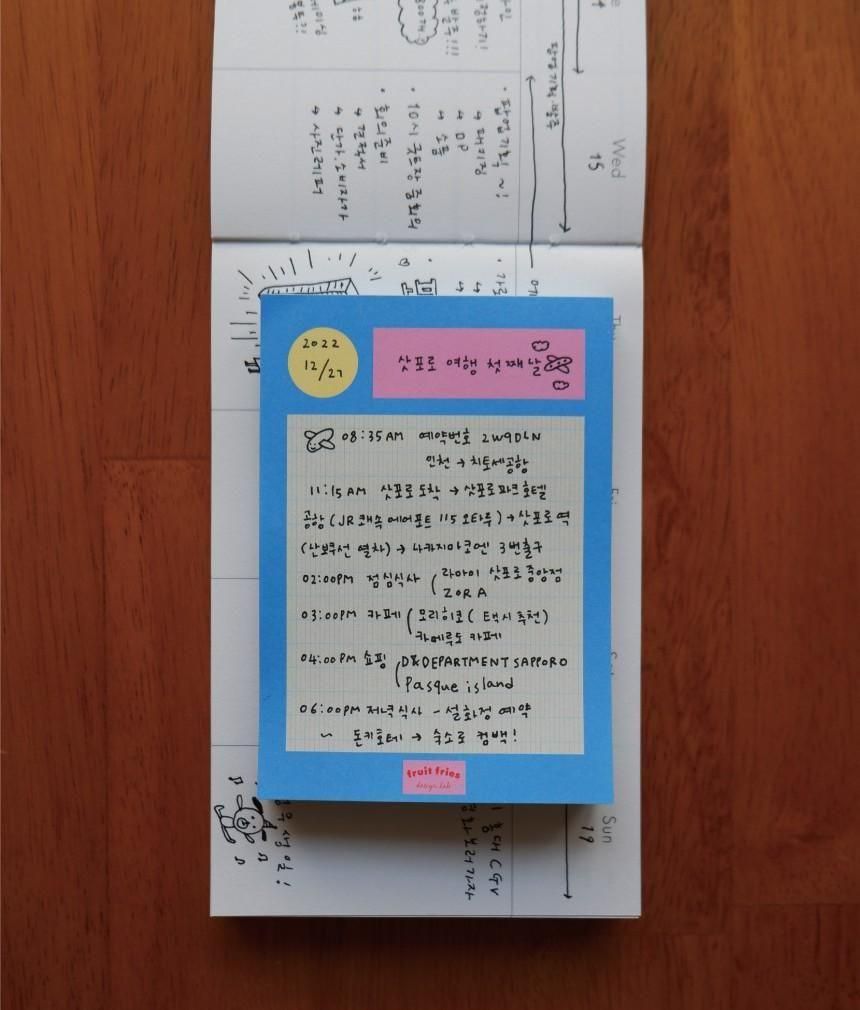 2022
12/27
삿포로 여행 첫째날
08:35AM 예약번호 2W9DLN
인천 → 치토세공항
11:15AM 삿포로 도착 → 삿포로파크호텔
공항 (JR쾌속 에어포트 115 오타루) → 삿포로역
(난보쿠선 열차) → 나카지마코엔 3번출구
02:00PM 점심식사 라마이 삿포로중앙점
ZORA
03:00PM 카페 모리히코 (택시 추천)
카메루도 카페
04:00PM 쇼핑 D&DEPARTMENT SAPPORO
Pasque island
06:00PM 저녁식사 - 설화정 예약
~ 돈키호테 → 숙소로 컴백!
fruit fries
design lab
Wed
15
· 팝업기획~!
↳ 패키징
↳ DP
↳ 소품
· 10시 국토장 중회의
· 회의준비
↳ 견적서
↳ 단가, 소비자가
↳ 사진레퍼
Sun
19
홍대 CGV
영화보러가자
생일!